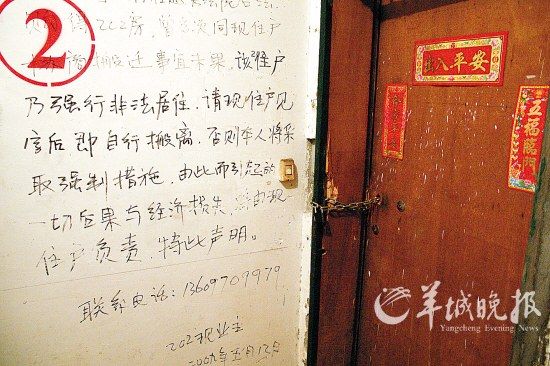 2
得202房,曾多次同现住户
搬迁事宜未果,该住户
乃强行非法居住,请现住户见
字后即自行搬离,否则本人将采
取强制措施,由此而引起的
一切后果与经济损失,
住户负责,特此声明。
联系电话:13609709979
202现业主
出入平安
五福临门
羊城晚报
Yangcheng Evening News